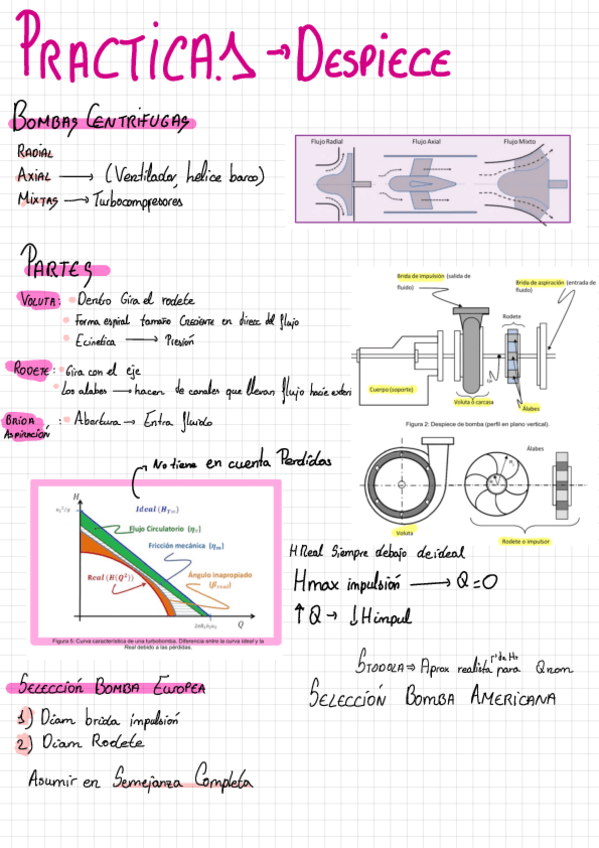 PRACTICA.1 → DESPIECE
BOMBAS CENTRIFUGAS
RADIAL
AXIAL → (Ventilador, hélice barco)
MIXTAS → Turbocompresores
Flujo Radial
Flujo Axial
Flujo Mixto
PARTES
VOLUTA: • Dentro Gira el rodete
• Forma espiral tamaño CRECIENTE en direcc del flujo
• Ecinetica → Presión
RODETE: • Gira con el eje
• Los alabes → hacen de canales que llevan flujo hacia exteri
BRIDA ASPIRACIÓN: • Abertura → Entra fluido
Brida de impulsión (salida de fluido)
Brida de aspiración (entrada de fluido)
Rodete
Cuerpo (soporte)
Voluta o carcasa
Álabes
Figura 2: Despiece de bomba (perfil en plano vertical).
Álabes
Voluta
Rodete o impulsor
No tiene en cuenta Perdidas
H
u₂²/g
Ideal (H_T,∞)
Flujo Circulatorio
Fricción mecánica
Real (H(Q²))
Ángulo inapropiado
Q
Figura 5: Curva característica de una turbobomba. Diferencia entre la curva ideal y la
Real debido a las pérdidas.
H Real Siempre debajo de ideal
Hmax impulsión → Q=0
↑Q → ↓Himpul
STODOLA ⇒ Aprox realista para Qnom
SELECCIÓN BOMBA EUROPEA
1) Diam brida impulsión
2) Diam Rodete
Asumir en Semejanza Completa
SELECCIÓN BOMBA AMERICANA